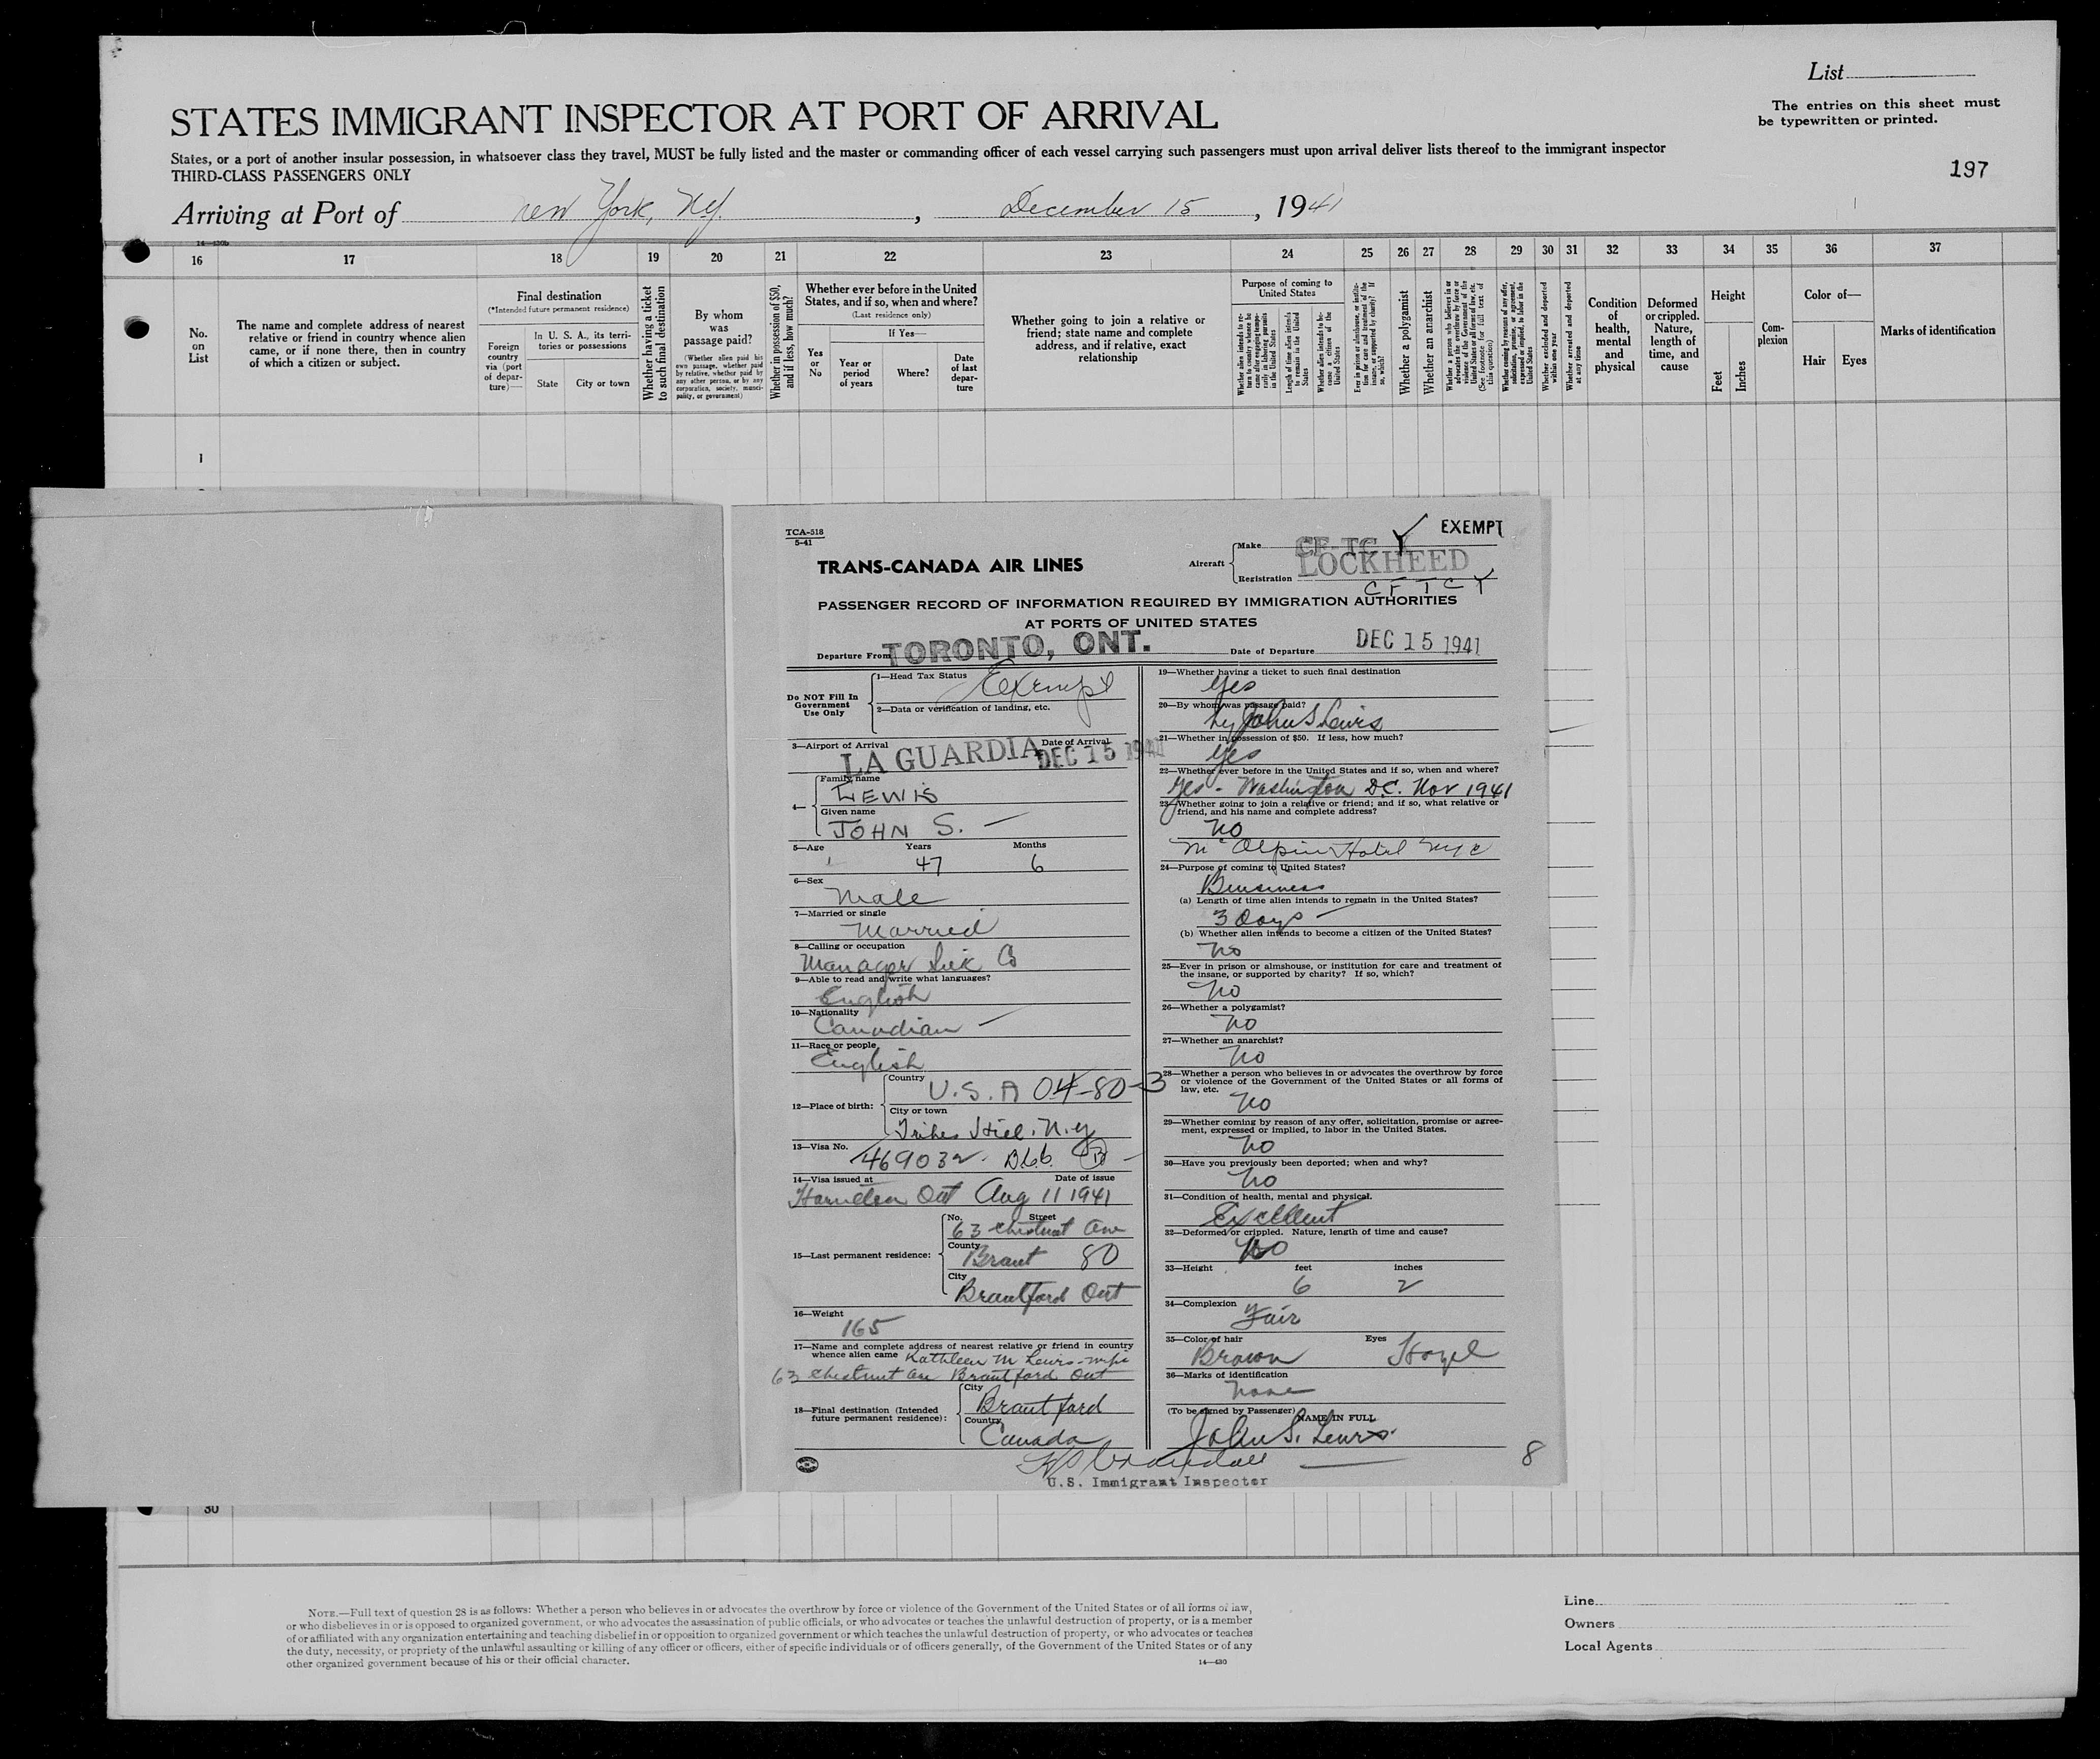 List
The entries on this sheet must
be typewritten or printed.
STATES IMMIGRANT INSPECTOR AT PORT OF ARRIVAL
States, or a port of another insular possession, in whatsoever class they travel, MUST be fully listed and the master or commanding officer of each vessel carrying such passengers must upon arrival deliver lists thereof to the immigrant inspector
THIRD-CLASS PASSENGERS ONLY
197
Arriving at Port of New York, N.Y., December 15, 1941
16 17 18 19 20 21 22 23 24 25 26 27 28 29 30 31 32 33 34 35 36 37
No.
on
List
The name and complete address of nearest
relative or friend in country whence alien
came, or if none there, then in country
of which a citizen or subject.
Final destination
(*Intended future permanent residence)
Foreign
country
via (port
of depar-
ture)—
In U. S. A., its terri-
tories or possessions
State
City or town
Whether having a ticket
to such final destination
By whom
was
passage paid?
(Whether alien paid his
own passage, whether paid
by relative, whether paid by
any other person, or by any
corporation, society, munici-
pality, or government)
Whether in possession of $50,
and if less, how much?
Whether ever before in the United
States, and if so, when and where?
(Last residence only)
Yes
or
No
If Yes—
Year or
period
of years
Where?
Date
of last
depar-
ture
Whether going to join a relative or
friend; state name and complete
address, and if relative, exact
relationship
Purpose of coming to
United States
Length of time alien intends
to remain in the United
States
Whether alien intends to be-
come a citizen of the
United States
Whether a polygamist
Whether an anarchist
Whether excluded and deported
within one year
Whether arrested and deported
at any time
Condition
of
health,
mental
and
physical
Deformed
or crippled.
Nature,
length of
time, and
cause
Height
Feet
Inches
Com-
plexion
Color of—
Hair
Eyes
Marks of identification
1
TCA-518
5-41
EXEMPT
TRANS-CANADA AIR LINES
Aircraft
Make CF-TC Y
LOCKHEED
Registration CF TCY
PASSENGER RECORD OF INFORMATION REQUIRED BY IMMIGRATION AUTHORITIES
AT PORTS OF UNITED STATES
Departure From TORONTO, ONT.
Date of Departure DEC 15 1941
Do NOT Fill In
Government
Use Only
1—Head Tax Status Exempt
2—Data or verification of landing, etc.
3—Airport of Arrival LA GUARDIA
Date of Arrival DEC 15 1941
4—
Family name
LEWIS
Given name
JOHN S.
5—Age Years 47 Months 6
6—Sex
Male
7—Married or single
Married
8—Calling or occupation
Manager Co
9—Able to read and write what languages?
English
10—Nationality
Canadian
11—Race or people
English
12—Place of birth:
Country
U.S.A 04-80-3
City or town
Tribes Hill. N.Y
13—Visa No.
469032
14—Visa issued at Date of issue
Hamilton Ont Aug 11 1941
15—Last permanent residence:
No. Street
63 Chestnut Ave
County
Brant 80
City
Brantford Ont
16—Weight
165
17—Name and complete address of nearest relative or friend in country
whence alien came Kathleen M Lewis - wife
63 Chestnut Ave Brantford Ont
18—Final destination (Intended
future permanent residence):
City
Brantford
Country
Canada
19—Whether having a ticket to such final destination
Yes
20—By whom was passage paid?
by John S Lewis
21—Whether in possession of $50. If less, how much?
Yes
22—Whether ever before in the United States and if so, when and where?
Yes - Washington D.C. Nov 1941
23—Whether going to join a relative or friend; and if so, what relative or
friend, and his name and complete address?
No
McAlpin Hotel NYC
24—Purpose of coming to United States?
Buusiness
(a) Length of time alien intends to remain in the United States?
3 Days
(b) Whether alien intends to become a citizen of the United States?
No
25—Ever in prison or almshouse, or institution for care and treatment of
the insane, or supported by charity? If so, which?
No
26—Whether a polygamist?
No
27—Whether an anarchist?
No
28—Whether a person who believes in or advocates the overthrow by force
or violence of the Government of the United States or all forms of
law, etc.
No
29—Whether coming by reason of any offer, solicitation, promise or agree-
ment, expressed or implied, to labor in the United States.
No
30—Have you previously been deported; when and why?
No
31—Condition of health, mental and physical.
Excellent
32—Deformed or crippled. Nature, length of time and cause?
No
33—Height feet inches
6 2
34—Complexion
Fair
35—Color of hair Eyes
Brown Hazel
36—Marks of identification
None
(To be signed by Passenger) NAME IN FULL
John S. Lewis
U.S. Immigrant Inspector
8
30
NOTE.—Full text of question 28 is as follows: Whether a person who believes in or advocates the overthrow by force or violence of the Government of the United States or of all forms of law,
or who disbelieves in or is opposed to organized government, or who advocates the assassination of public officials, or who advocates or teaches the unlawful destruction of property, or is a member
of or affiliated with any organization entertaining and teaching disbelief in or opposition to organized government or which teaches the unlawful destruction of property, or who advocates or teaches
the duty, necessity, or propriety of the unlawful assaulting or killing of any officer or officers, either of specific individuals or of officers generally, of the Government of the United States or of any
other organized government because of his or their official character.
14—430
Line
Owners
Local Agents